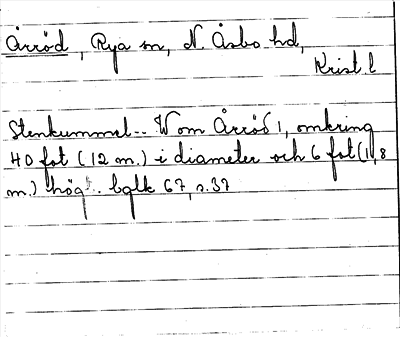 Årröd, Rya sn, N. Åsbo hd,
Krist. l
Stenkummel.. W om Årröd 1, omkring
40 fot (12 m.) i diameter och 6 fot (1,8
m.) hög.. bglk 67, s. 37